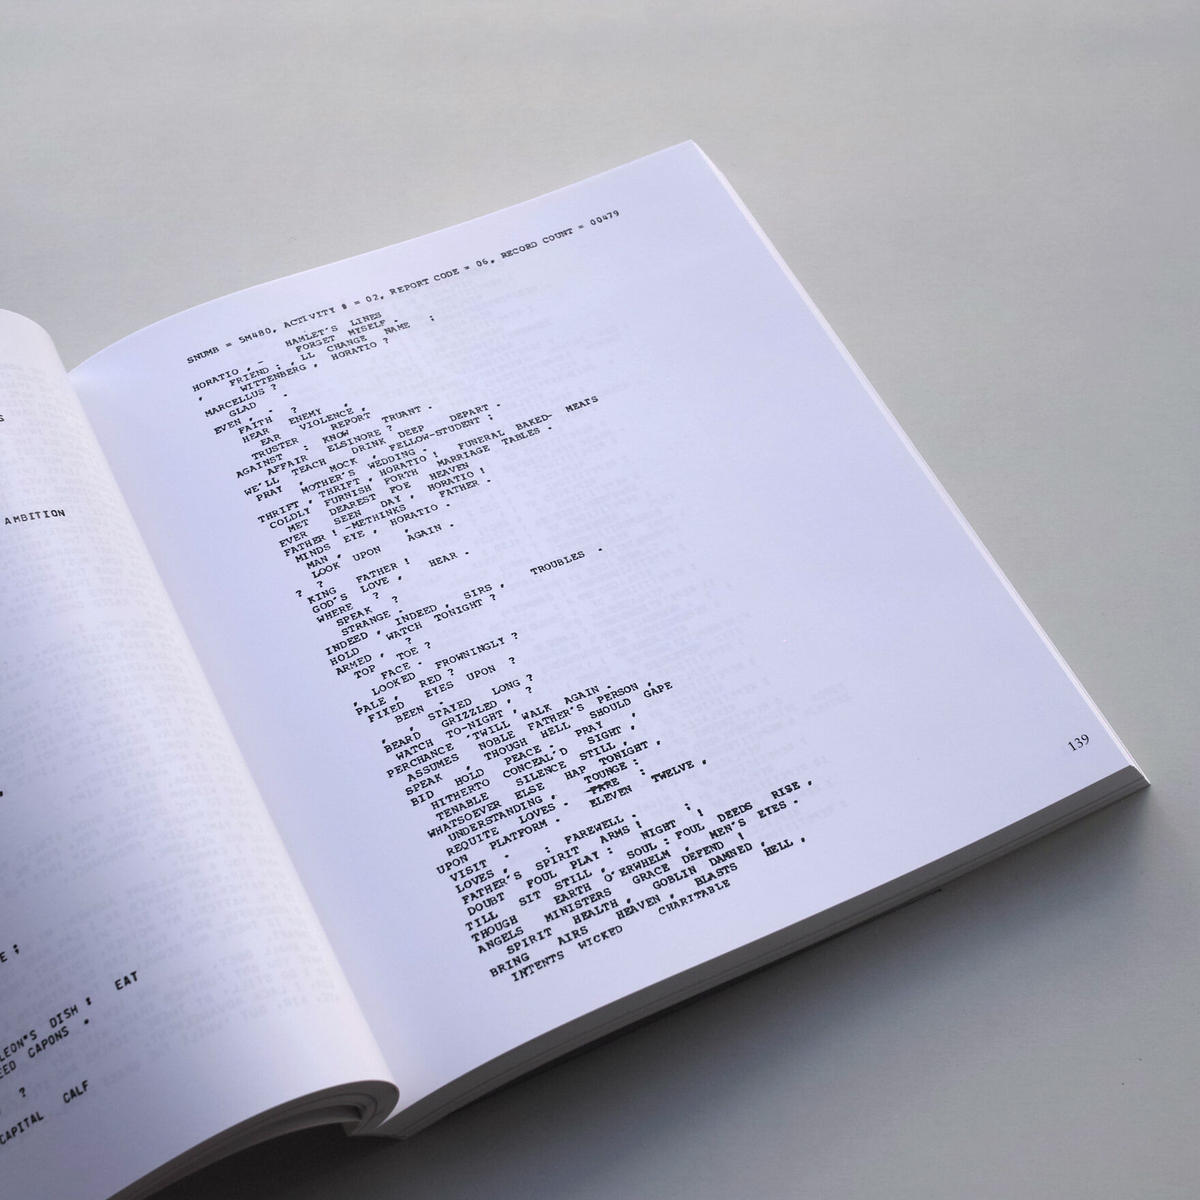 S
AMBITION
E ;
LEON'S DISH : EAT
EED CAPONS .
?
CAPITAL CALF
SNUMB = 5M480, ACTIVITY # = 02, REPORT CODE = 06, RECORD COUNT = 00479
HAMLET'S LINES
HORATIO , - FORGET MYSELF .
FRIEND ; , LL CHANGE NAME :
, WITTENBERG , HORATIO ?
MARCELLUS ?
GLAD .
EVEN , - ?
FAITH ENEMY ,
HEAR VIOLENCE ,
EAR REPORT TRUANT .
TRUSTER : KNOW
AGAINST ELSINORE ?
AFFAIR DRINK DEEP DEPART .
WE'LL TEACH , FELLOW-STUDENT ;
PRAY , MOCK
MOTHER'S WEDDING .
THRIFT , THRIFT , HORATIO ! FUNERAL BAKED- MEATS
COLDLY FURNISH FORTH MARRIAGE TABLES .
MET DEAREST FOE HEAVEN
EVER SEEN DAY , HORATIO !
FATHER ! -METHINKS FATHER .
MINDS EYE , HORATIO .
MAN ,
LOOK UPON AGAIN .
?
? KING FATHER !
GOD'S LOVE , HEAR .
WHERE ?
SPEAK ?
STRANGE .
INDEED , INDEED , SIRS , TROUBLES .
HOLD WATCH TONIGHT ?
ARMED , ?
TOP TOE ?
FACE .
, LOOKED FROWNINGLY ?
PALE , RED ?
FIXED EYES UPON ?
BEEN .
, , STAYED LONG ?
BEARD GRIZZLED , ?
WATCH TO-NIGHT ,
PERCHANCE 'TWILL WALK AGAIN .
ASSUMES NOBLE FATHER'S PERSON ,
SPEAK , THOUGH HELL SHOULD GAPE
BID HOLD PEACE : PRAY ,
HITHERTO CONCEAL'D SIGHT ,
TENABLE SILENCE STILL ,
WHATSOEVER ELSE HAP TONIGHT ,
UNDERSTANDING , TOUNGE :
REQUITE LOVES . FARE :
UPON PLATFORM . ELEVEN TWELVE ,
VISIT .
LOVES , : FAREWELL .
FATHER'S SPIRIT ARMS ! ;
DOUBT FOUL PLAY : NIGHT !
TILL SIT STILL , SOUL : FOUL DEEDS RISE ,
THOUGH EARTH O'ERWHELM , MEN'S EYES .
ANGELS MINISTERS GRACE DEFEND !
SPIRIT HEALTH , GOBLIN DAMNED ,
BRING AIRS HEAVEN , BLASTS HELL ,
INTENTS WICKED CHARITABLE
139